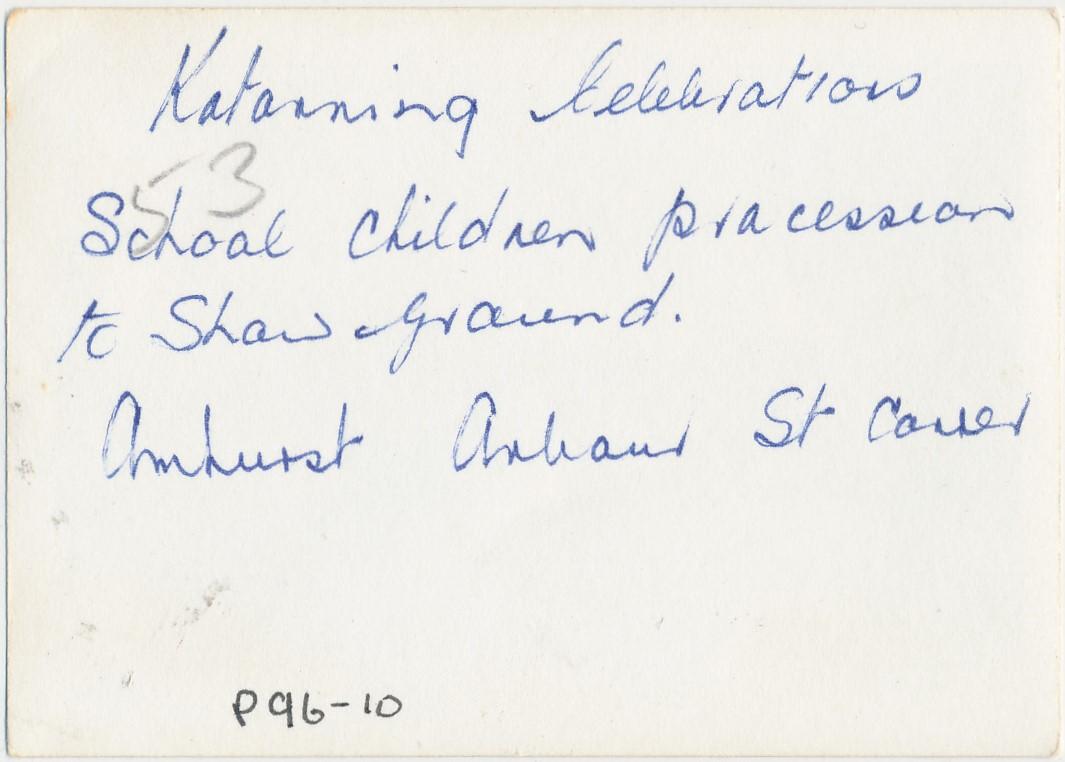 Katanning Celebrations
53
School children procession
to Show Ground.
Amhurst Arbour St Corner
P96-10